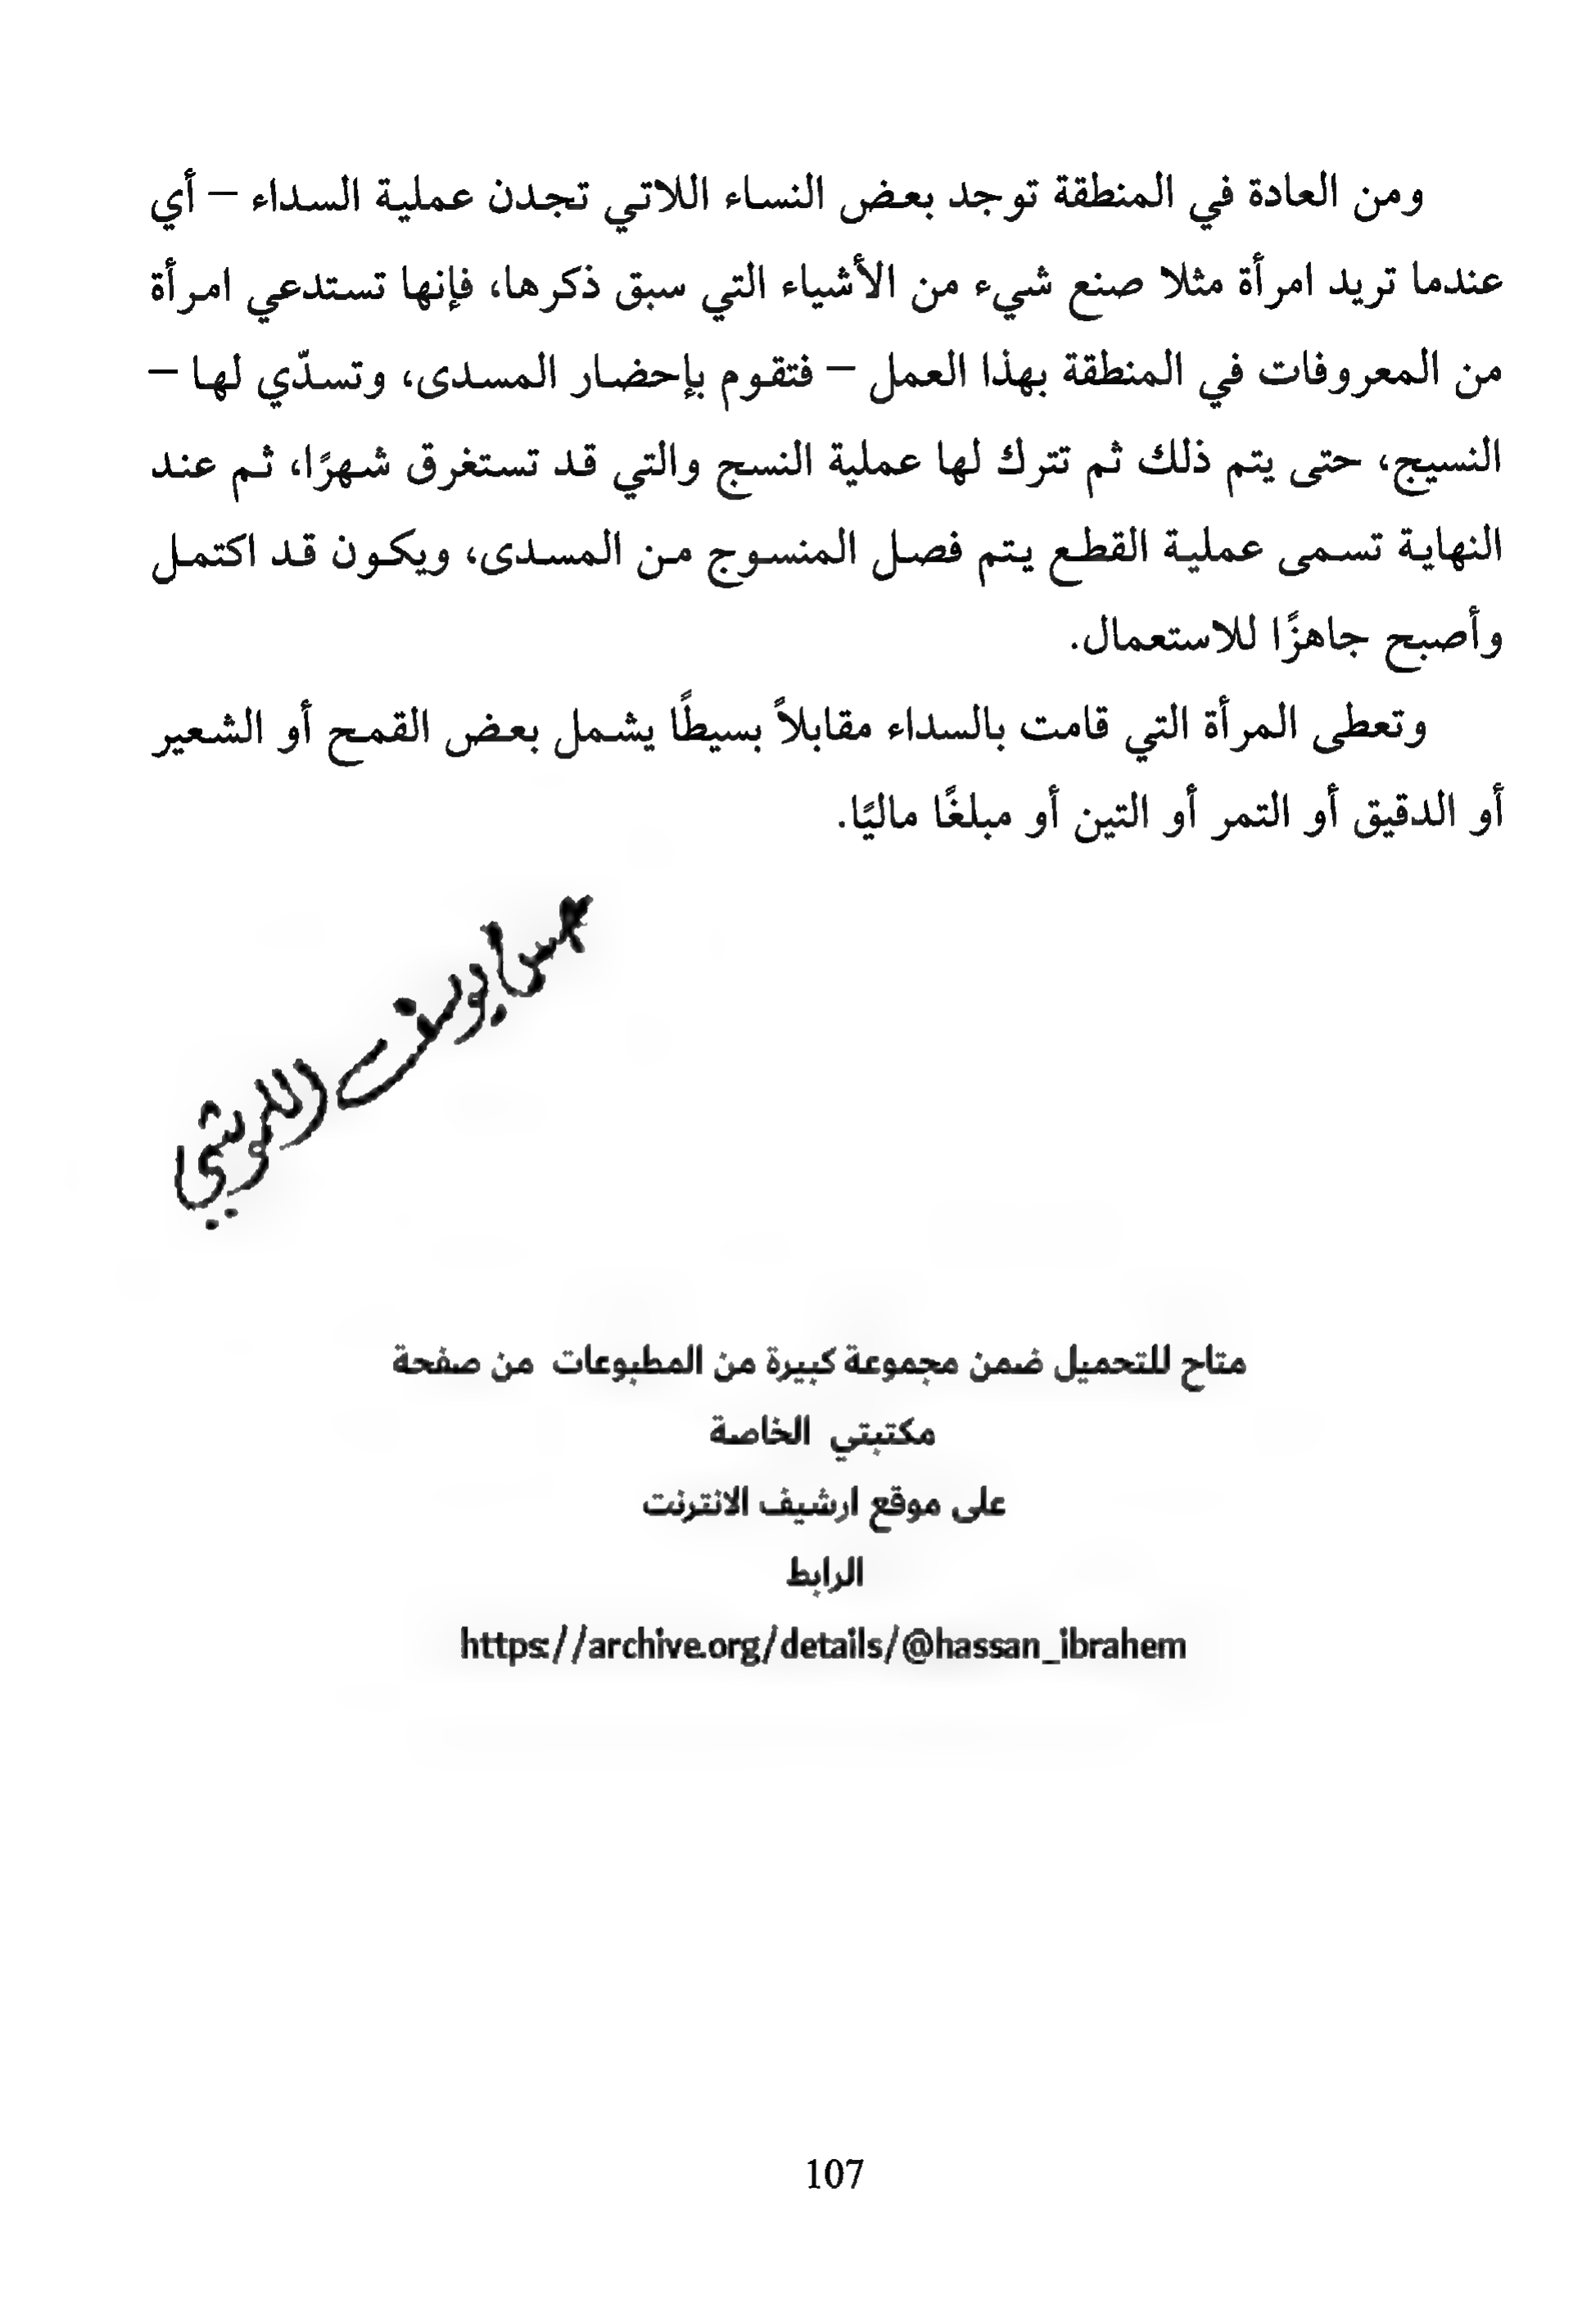 ومن العادة في المنطقة توجد بعض النساء اللاتي تجدن عملية السداء – أي
عندما تريد امرأة مثلا صنع شيء من الأشياء التي سبق ذكرها، فإنها تستدعي امرأة
من المعروفات في المنطقة بهذا العمل – فتقوم بإحضار المسدى، وتسدّي لها –
النسيج، حتى يتم ذلك ثم تترك لها عملية النسج والتي قد تستغرق شهرًا، ثم عند
النهاية تسمى عملية القطع يتم فصل المنسوج من المسدى، ويكون قد اكتمل
وأصبح جاهزًا للاستعمال.
وتعطى المرأة التي قامت بالسداء مقابلاً بسيطًا يشمل بعض القمح أو الشعير
أو الدقيق أو التمر أو التين أو مبلغًا ماليًا.
يوسف
متاح للتحميل ضمن مجموعة كبيرة من المطبوعات من صفحة
مكتبتي الخاصة
على موقع ارشيف الانترنت
الرابط
https://archive.org/details/@hassan_ibrahem
107